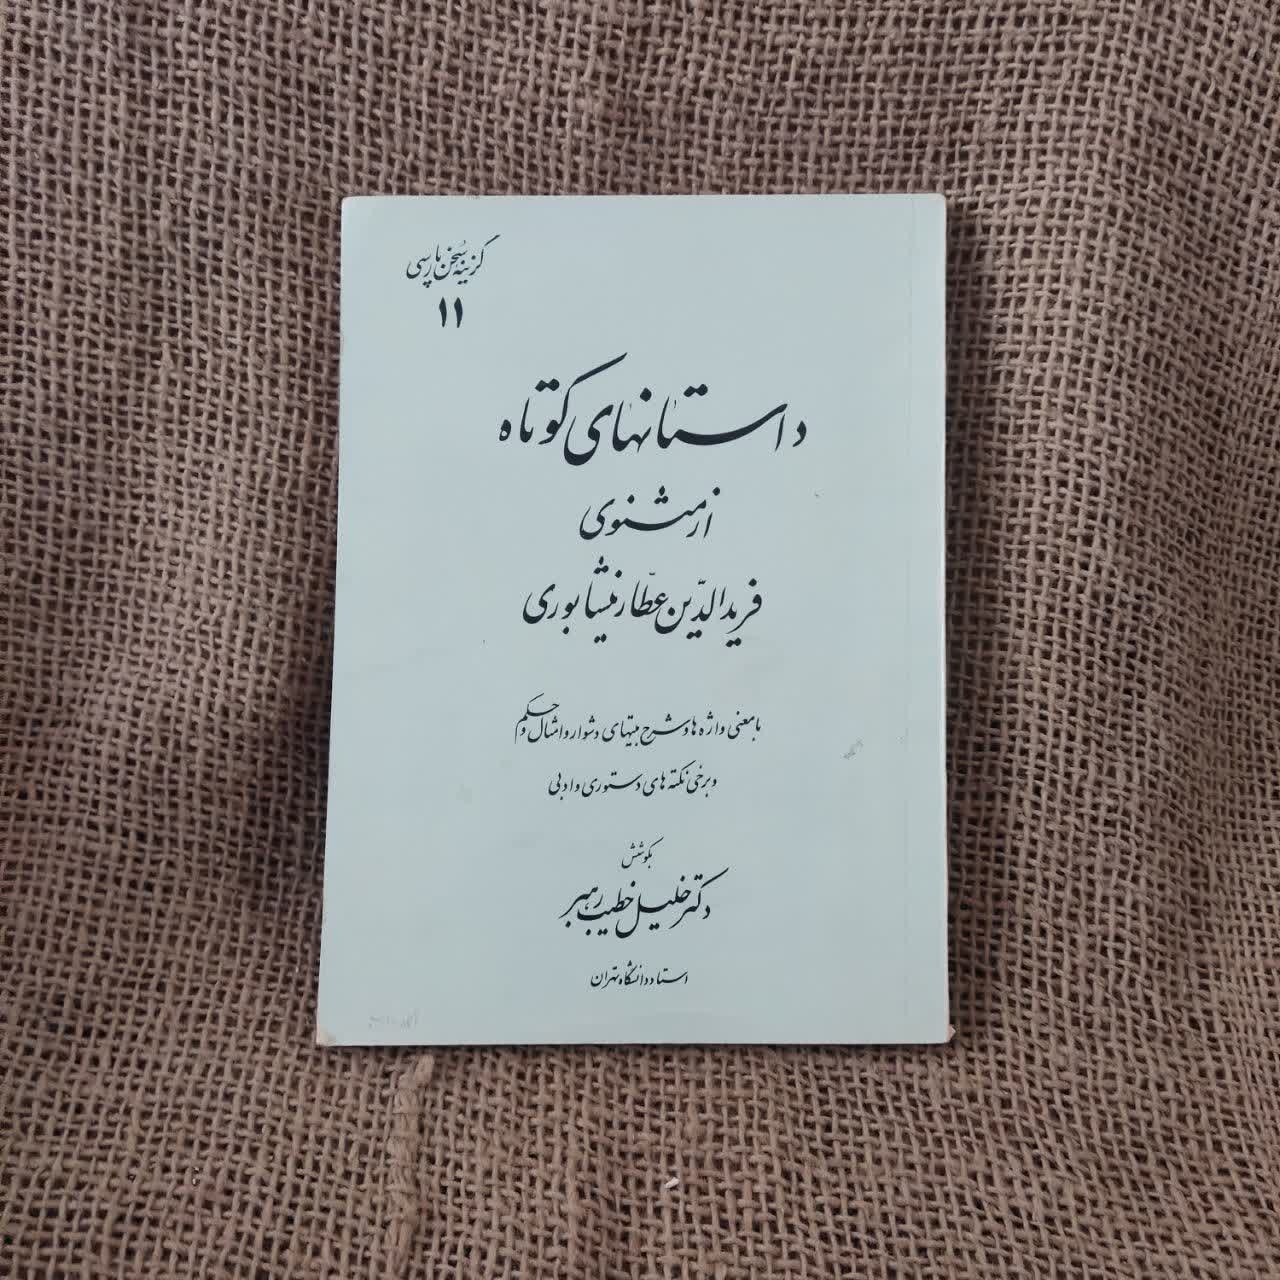 گزینه سخن پارسی
۱۱
داستانهای کوتاه
از مثنوی
فریدالدّین عطّار نیشابوری
با معنی واژه ها و شرح بیتهای دشوار و امثال و حکم
و برخی نکته های دستوری و ادبی
بکوشش
دکتر خلیل خطیب رهبر
استاد دانشگاه تهران